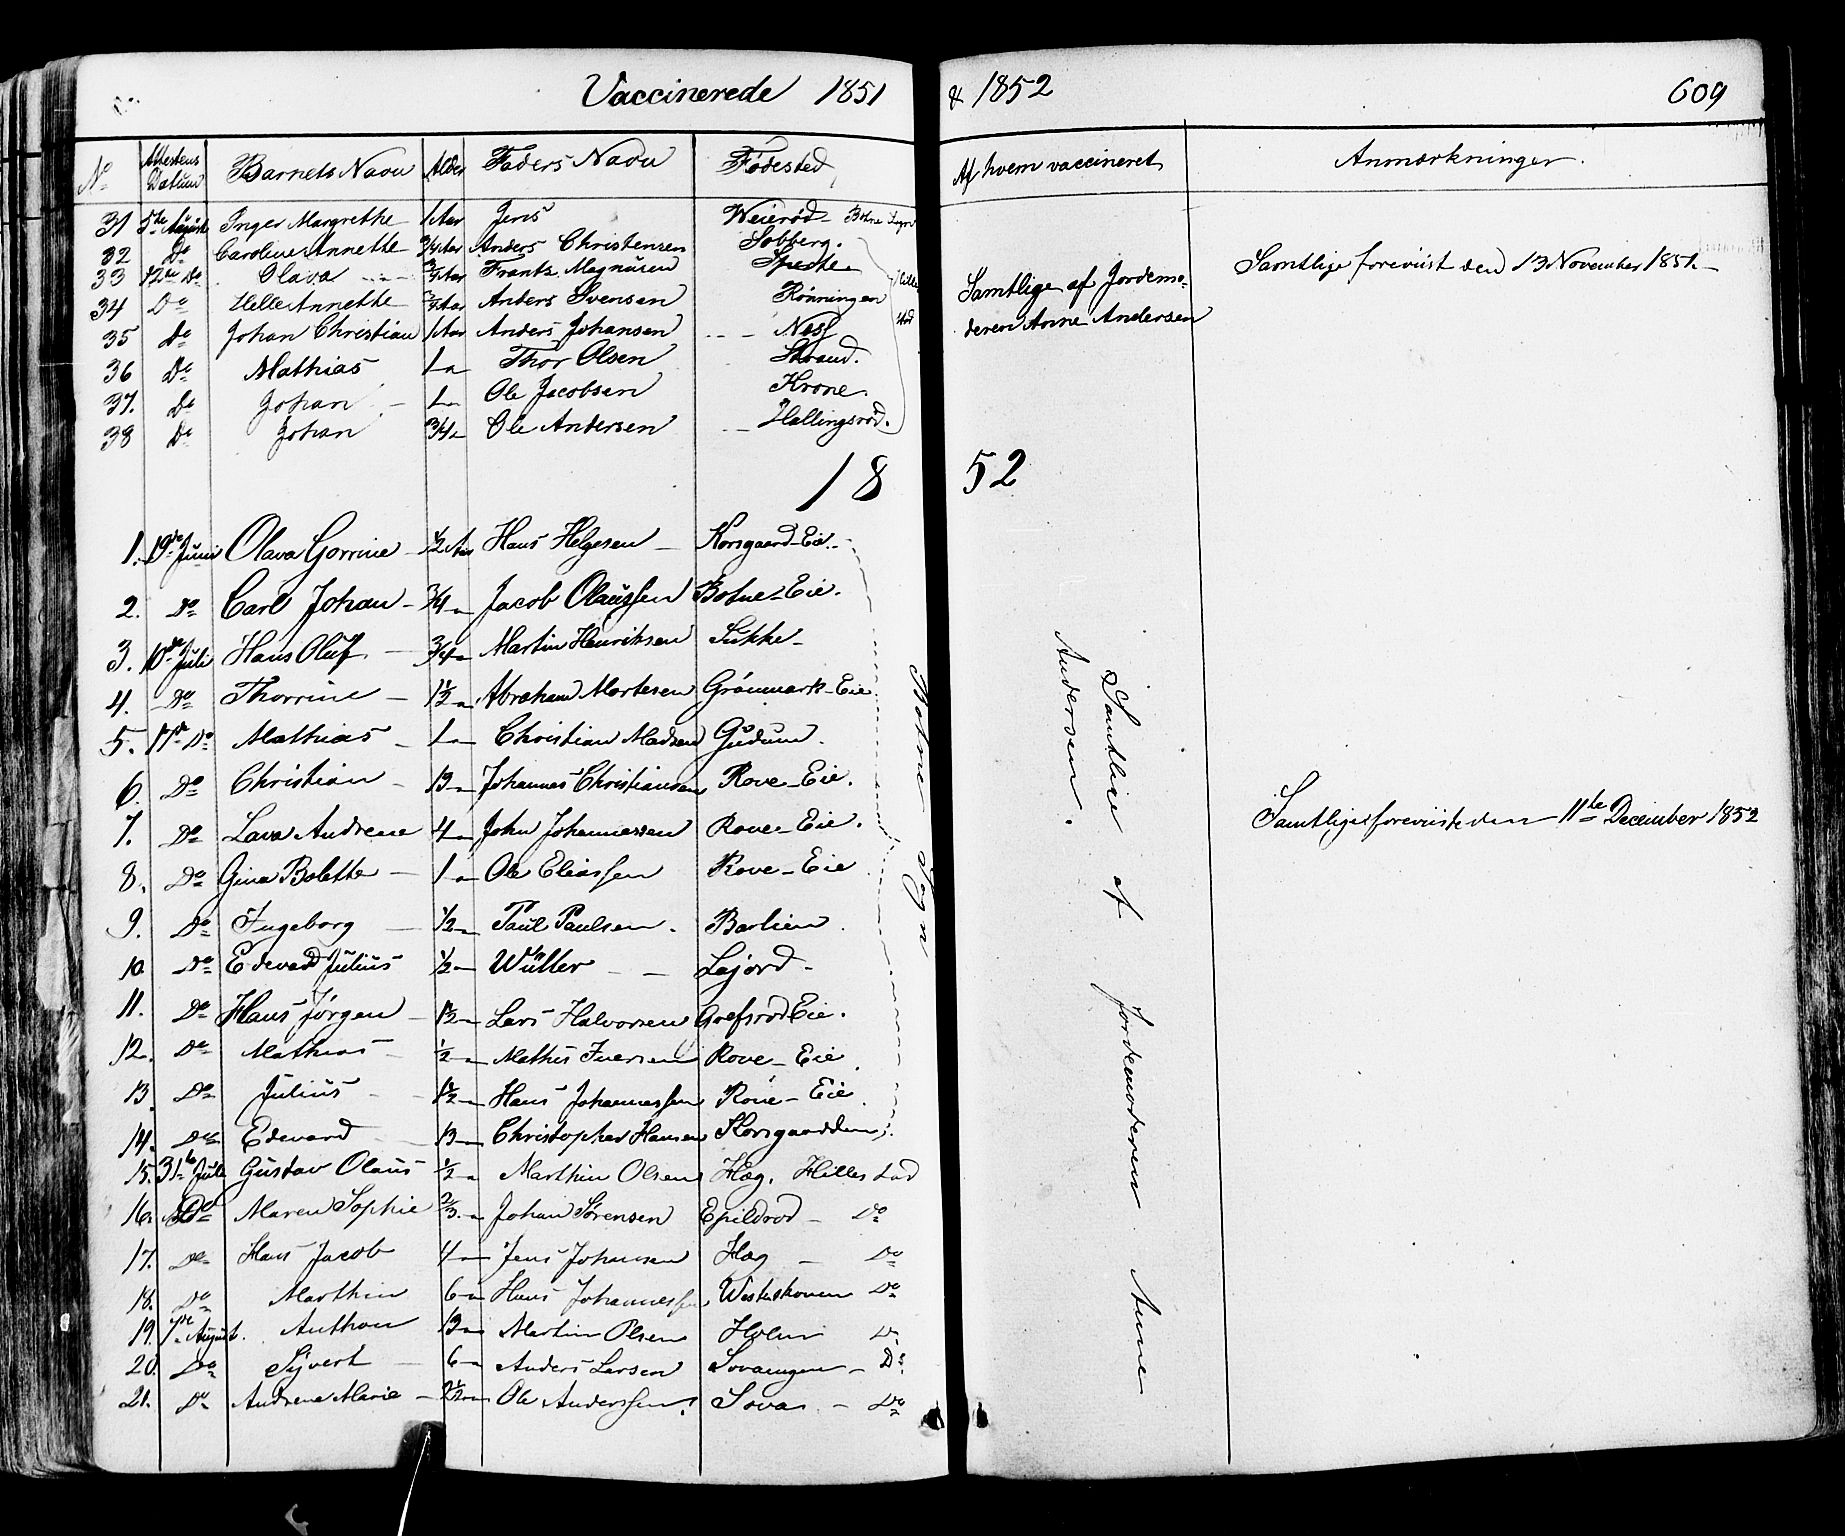 Vaccinerede 1851 & 1852 609
No Attestens Datum Barnets Navn Alder Faders Navn Fødested Af hvem vaccineret Anmærkninger.
31 5te August Inger Margrethe 1 Aar Jens Weierød - Botne Sogn
32 Do Caroline Annette 3/4 Aar Anders Christensen Solberg.
33 12te Do Olava 3/4 Aar Frantz Magnusen
34 Do Helle Annette Aar Anders Svensen Rönningen
35 Do Johan Christian 1 Aar Anders Johansen Ness
36 Do Mathias 1 " Thor Olsen Strand.
37. Do Johan 1 " Ole Jacobsen Krone.
38 Do Johan 3/4 " Ole Andersen Hallingsrød.
Hillestad
Samtlige af Jordemo-
deren Anne Andersen
Samtlige foreviist den 13 November 1851
1852
1. 19de Juni Olava Gorrine 1/2 Aar Hans Helgesen Korsgaard-Eie.
2. Do Carl Johan 3/4 " Jacob Olaussen Botne-Eie.
3. 10de Juli Hans Oluf 3/4 " Martin Henriksen Sukke
4. Do Thorrine 1 1/2 " Abraham Mortesen Grönmark-Eie
5. 17de Do Mathias 1 " Christian Madsen Gudum.
6. Do Christian 13 " Johannes Christiansen Rove-Eie.
7. Do Lava Andrene 4 " John Johannessen Rove-Eie.
8. Do Gina Bolette 1 " Ole Eliassen Rove-Eie
9. Do Ingeborg 1/2 " Paul Paulsen. Barlien.
10 Do Edevard Julius 1/2 " Wüller Lejord
11. Do Hans Jörgen 1 1/2 " Lars Halvorsen Grefsrød Eie.
12. Do Mathias 1/2 " Mathis Iversen Rove-Eie.
13. Do Julius 1 1/2 " Hans Johannessen Rove-Eie.
14. Do Edevard 13 " Christopher Hansen Korsgaarden.
15. 31te Juli Gustav Olaus 1/2 " Marthin Olsen Hæg, Hillestad
16. Do Maren Sophie 2/3 " Johan Sörensen Epildrød Do
17. Do Hans Jacob 4 " Jens Johansen Hæg Do
18. Do Marthin 6 " Hans Johannessen Westskoven Do
19. 7de August. Anthon 13 " Martin Olsen Holm Do
20. Do Sivert 6 " Anders Larsen Sovangen Do
21. Do Andrena Marie 2 1/2 " Ole Anderssen. Sova Do
Botne Sogn
Samtlige af Jordemoderen Anne
Andersen.
Samtlige foreviist den 11te December 1852